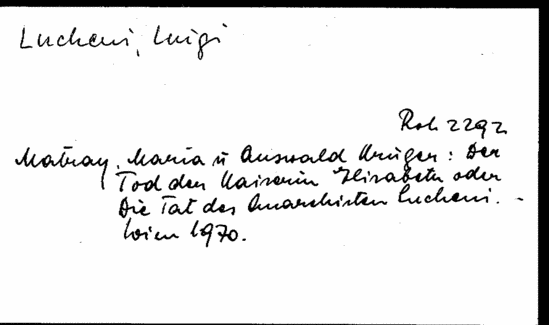 Lucheni, Luigi
Rok 2292
Matray, Maria u Answald Krüger: Der
Tod der Kaiserin Elisabeth oder
Die Tat des Anarchisten Lucheni. -
Wien 1970.